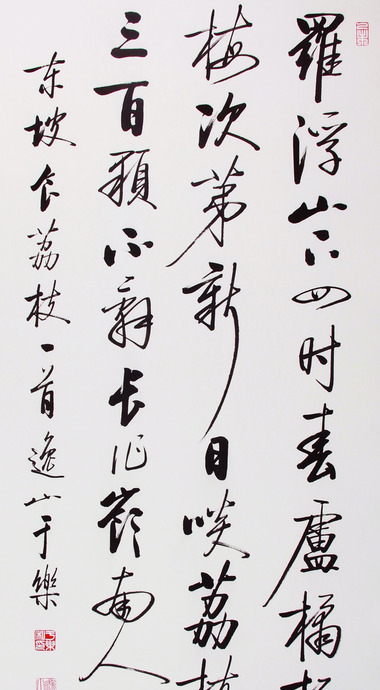 羅浮山下四时春盧橘
梅次第新日啖荔
三百顆不辞长作嶺南人
东坡食荔枝一首逸山于樂